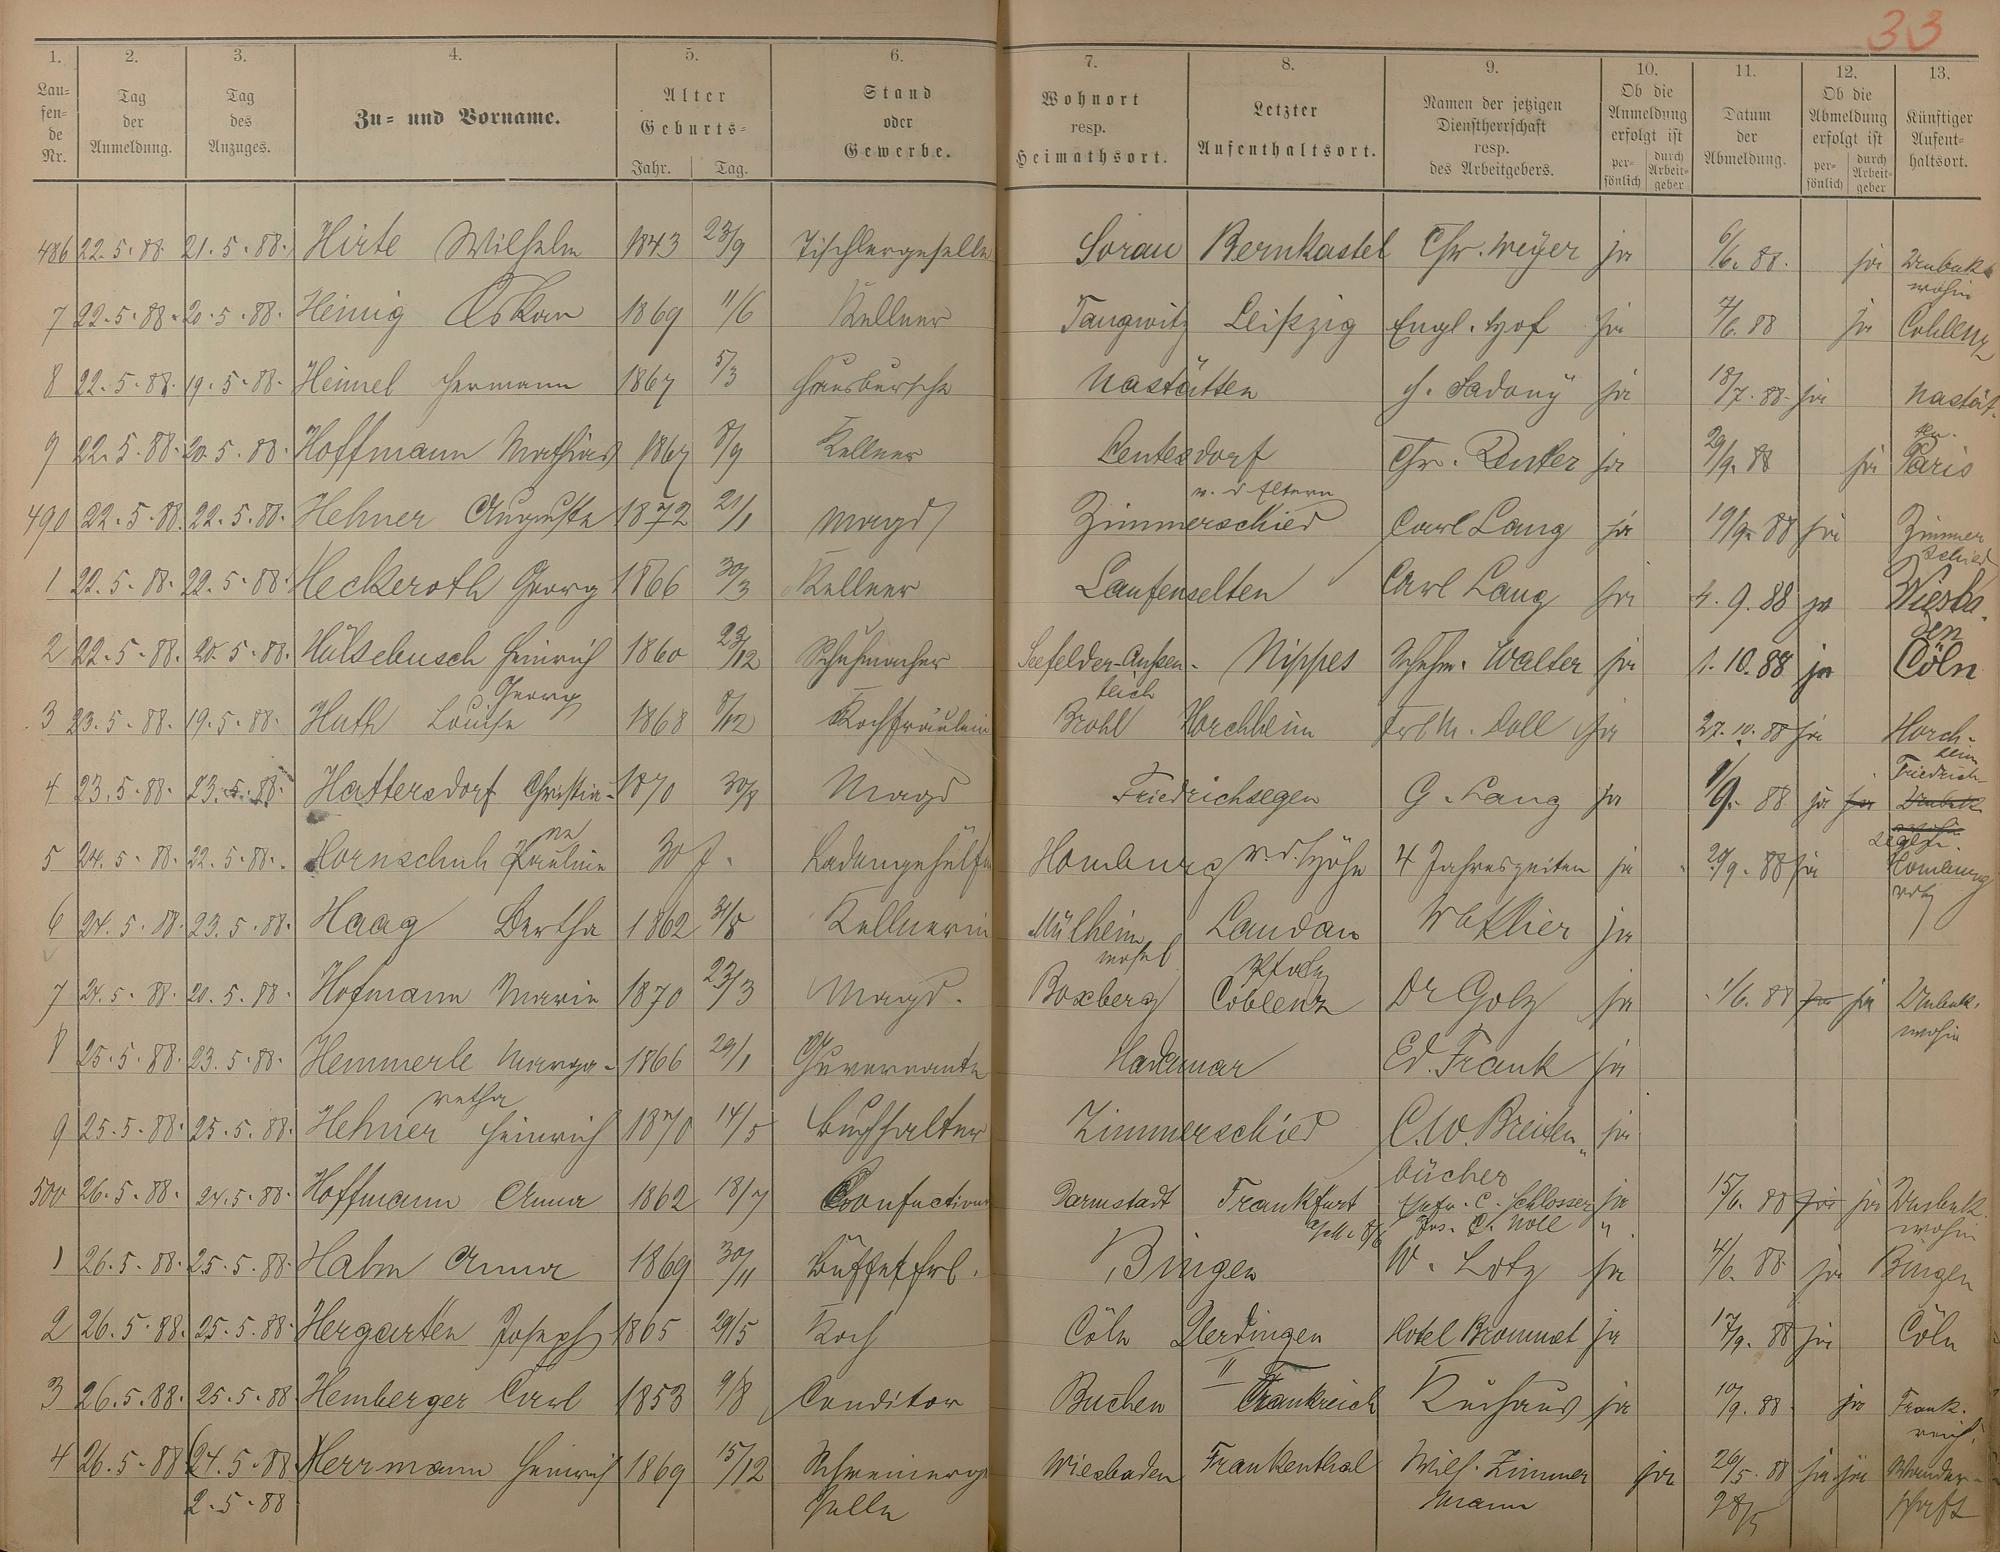 33
1. 2. 3. 4. 5. 6. 7. 8. 9. 10. 11. 12. 13.
Lau=
fen=
de
Nr.
Tag
der
Anmeldung.
Tag
des
Anzuges.
Zu= und Vorname.
Alter
Geburts=
Jahr. Tag.
Stand
oder
Gewerbe.
Wohnort
resp.
Heimathsort.
Letzter
Aufenthaltsort.
Namen der jetzigen
Dienstherrschaft
resp.
des Arbeitgebers.
Ob die
Anmeldung
erfolgt ist
per=
sönlich
durch
Arbeit=
geber
Datum
der
Abmeldung.
Ob die
Abmeldung
erfolgt ist
per=
sönlich
durch
Arbeit=
geber
Künftiger
Aufent=
haltsort.
486 22.5.88 21.5.88. Hirte Wilhelm 1843 23/9 Tischlergeselle Sorau Bernkastel Chr. Meyer ja 6/6. 88. ja Unbekt
wohin
7 22.5.88. 20.5.88. Heinig Oskar 1869 11/6 Kellner Leipzig Engl. Hof ja 4/6. 88 ja Coblenz
8 22.5.88. 19.5.88. Heimel Hermann 1867 5/3 Hausbursche Nastätten ja 18/7. 88. ja Nastät-
ten.
9 22.5.88. 20.5.88. Hoffmann Mathias 1867 8/9 Kellner Leutesdorf Chr. ja 29/9. 88 ja Paris
b. d Eltern
490 22.5.88. 22.5.88. Hehner Auguste 1872 21/1 Magd Zimmerschied Carl Lang ja 19/9. 88 ja Zimmer
schied
1 22.5.88. 22.5.88. Heckeroth Georg 1866 30/3 Kellner Laufenselten Carl Lang ja 4. 9. 88 ja Wiesba.
den
2 22.5.88. 20.5.88. Hülsebusch Heinrich 1860 23/12 Schuhmacher Seefelder-Außen- Nippes Schuhm. Walter ja 1. 10. 88 ja Cöln
Georg
teich
3 23.5.88. 19.5.88. Huth Louise 1868 8/12 Kochfräulein Brohl Horchheim Frl M. Doll ja 27. 10. 88 ja Horch-
heim
4 23.5.88. 23.5.88. Hattersdorf Christia- 1870 30/8 Magd Friedrichsegen G. Lang ja 1/9. 88 ja Friedrich-
ne
segen.
5 24.5.88. 22.5.88. Hornschuh Pauline 30 J. Ladengehülfin Homburg v. d. Höhe 4 Jahreszeiten ja 29/9. 88 ja Homburg
vdh
6 24.5.88. 23.5.88. Haag Bertha 1862 31/8 Kellnerin Mülheim Landau ja
Mosel
Pfalz
7 24.5.88. 20.5.88. Hofmann Marie 1870 23/3 Magd. Boxberg Coblenz Dr Golz ja 1/6. 88 ja ja Unbek.
wohin
8 25.5.88. 23.5.88. Hemmerle Marga- 1866 29/1 Guvernante Hadamar Ed. Frank ja
retha
9 25.5.88. 25.5.88. Hehner Heinrich 1870 14/5 Buchhalter Zimmerschied C. W. Breiden ja
bücher
500 26.5.88. 24.5.88. Hoffmann Anna 1862 18/7 Confection Darmstadt Frankfurt C. Schlosser ja 15/6. 88 ja ja Unbek
wohin
1 26.5.88. 25.5.88. Halm Anna 1869 30/11 Büffetfrl. Bingen W. Lotz ja 4/6. 88 ja Bingen
2 26.5.88. 25.5.88. Hergarten Joseph 1865 29/5 Koch Cöln Uerdingen Hotel Brommet ja 17/9. 88 ja Cöln
3 26.5.88. 25.5.88 Hemberger Carl 1853 9/8 Conditor Buchen Frankreich Kurhaus ja 10/9. 88 ja Frank.
reich.
4 26.5.88 24.5.88 Herrmann Heinrich 1869 15/12 Schreinerge Wiesbaden Frankenthal Wilh. Zimmer ja 26/5. 88 ja ja Wander-
2.5.88 selle mann 28/5 schaft